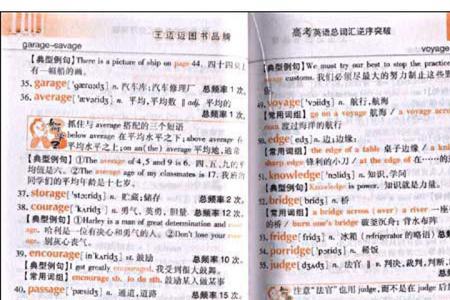 王迈迈图书品牌
garage~savage
【典型例句】There is a picture of ship on page 44. 四十四页上
有一幅船的画。
35. garage['gæraːdʒ] n. 汽车库;汽车修理厂 总频率 1 次
36. average['ævəridʒ] n. 平均,平均数 adj. 平均的
总频率
抓住与 average 搭配的三个短语
below average 在平均水平之下; above average 在
平均水平之上; on an(the) average 平均地,通常
【典型例句】①The average of 4,5 and 9 is 6. 四、五、九的平
均值是六。②The average age of my classmates is 17. 我的
同学们的平均年龄是十七岁。
37. storage['stɔːridʒ] n. 贮藏;储存 总频率 2 次
38. courage['kʌridʒ] n. 勇气,英勇,胆量 总频率 12 次
【典型例句】①Harley is a man of great determination and
age. 哈利是一位有决心和勇气的人。②Don't lose your
age. 别灰心丧气。
39. encourage[in'kʌridʒ] vt. 鼓励 总频率 10 次
【典型例句】I got greatly encouraged. 我受到很大鼓舞。
【常用词组】encourage sb. to do sth. 鼓励某人做某事
40. passage['pæsidʒ] n. 通道,道路 总频率 15 次
高考英语总词汇逆序突破
voyage
【典型例句】We must try our best to stop the practice
customs. 我们必须尽最大的努力制止这些
voyage['vɔiidʒ] n. 航行,航海
【常用词组】go on a voyage 航海 / a voyage
渡过海洋的航行
edge[edʒ] n. 边,边缘;
【常用词组】the edge of a table 桌子边缘 / a
sharp edge 锋利的小刀 / at the edge of 在……的
knowledge['nɔlidʒ] n. 知识,学问
【典型例句】Knowledge is power. 知识就是力量。
bridge[bridʒ] n. 桥
【常用词组】a bridge across (over) a river 一座
的桥 / burn one's bridge 破釜沉舟;背水布阵
fridge[fridʒ] n. 冰箱 (refrigerator 的略语)
porridge['pɔridʒ] n. 稀饭
judge[dʒʌdʒ] n. 法官 n. 判决,裁判,判断,
注意“法官”也用 judge, 而不是在 judge 后